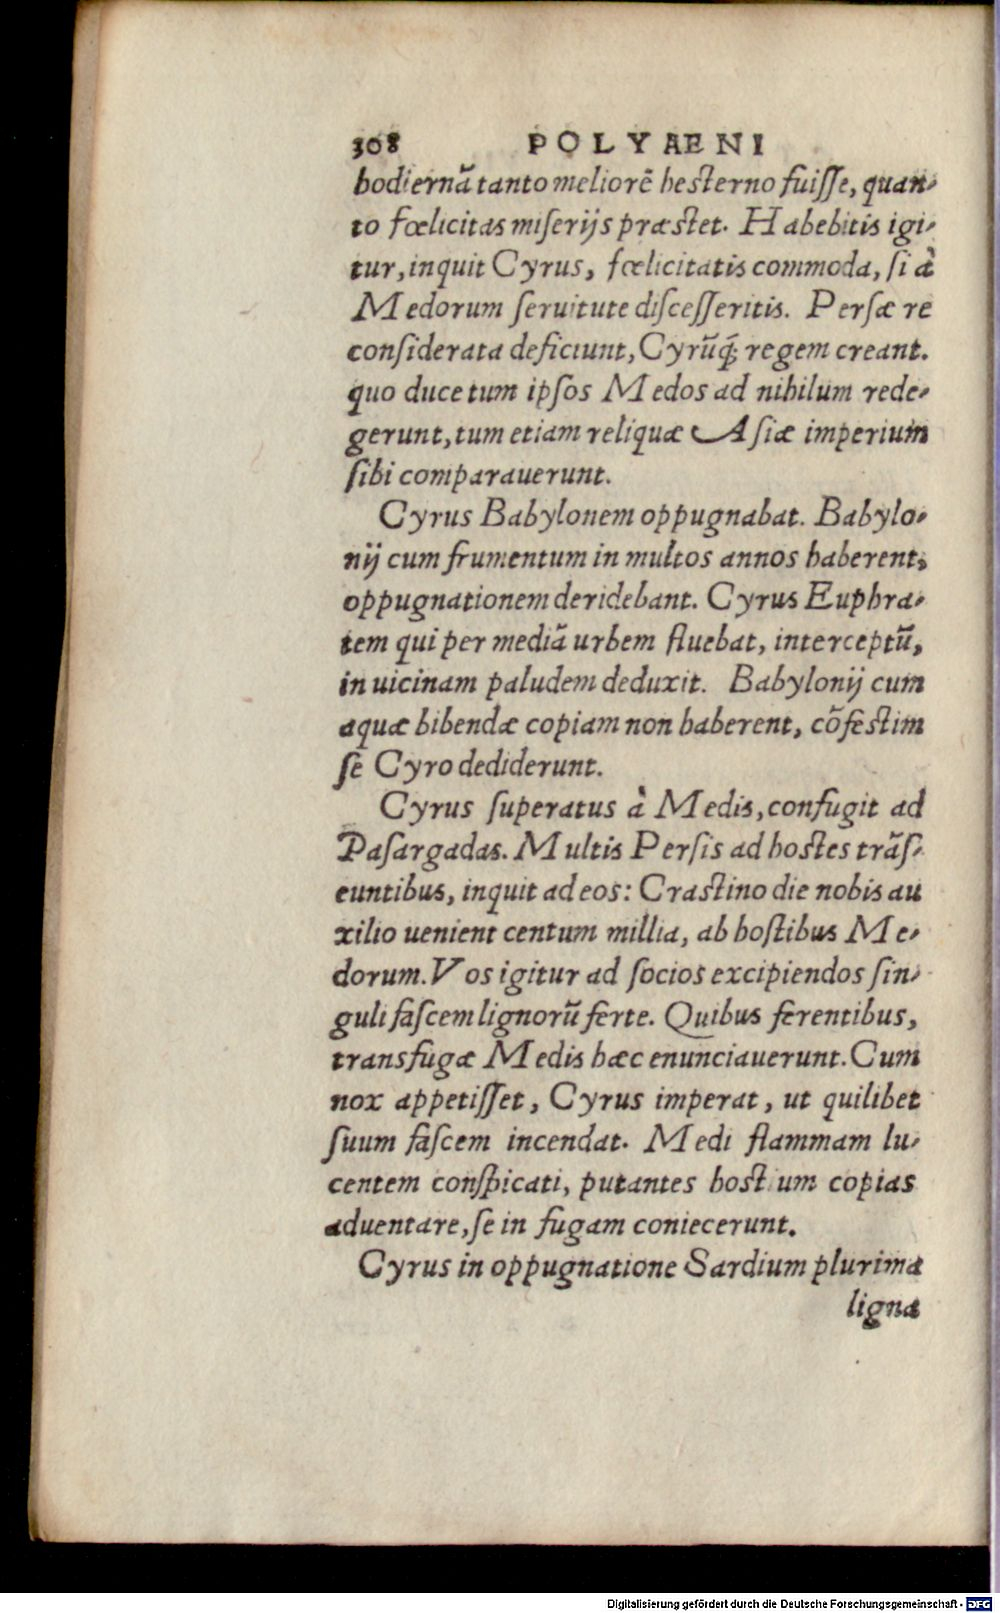 308 POLYAENI
hodiernā tanto meliorē hesterno fuiſſe, quan-
to fœlicitas miſerijs præstet. Habebitis igi-
tur, inquit Cyrus, fœlicitatis commoda, ſi à
Medorum ſeruitute diſceſſeritis. Perſæ re
conſiderata deficiunt, Cyrūq́; regem creant.
quo duce tum ipſos Medos ad nihilum rede-
gerunt, tum etiam reliquæ Aſiæ imperium
ſibi comparauerunt.
Cyrus Babylonem oppugnabat. Babylo-
nij cum frumentum in multos annos haberent,
oppugnationem deridebant. Cyrus Euphra-
tem qui per mediā urbem fluebat, interceptū,
in uicinam paludem deduxit. Babylonij cum
aquæ bibendæ copiam non haberent, cōfestim
ſe Cyro dediderunt.
Cyrus ſuperatus à Medis, confugit ad
Paſargadas. Multis Perſis ad hostes trāſ-
euntibus, inquit ad eos: Crastino die nobis au
xilio uenient centum millia, ab hoſtibus Me-
dorum. Vos igitur ad ſocios excipiendos ſin-
guli faſcem lignorū ferte. Quibus ferentibus,
transfugæ Medis hæc enunciauerunt. Cum
nox appetiſſet, Cyrus imperat, ut quilibet
ſuum faſcem incendat. Medi flammam lu-
centem conſpicati, putantes hostium copias
aduentare, ſe in fugam coniecerunt.
Cyrus in oppugnatione Sardium plurima
ligna
Digitalisierung gefördert durch die Deutsche Forschungsgemeinschaft - DFG